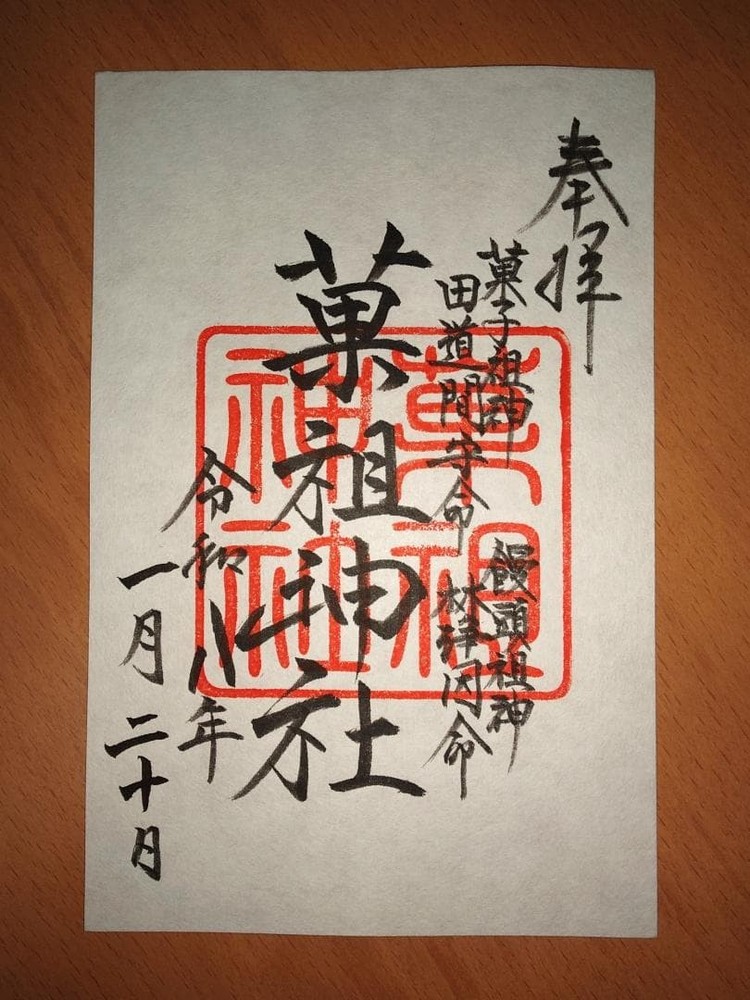 奉拝
菓子祖神 饅頭祖神
田道間守命 林浄因命
菓祖神社
菓祖神社
令和八年
一月二十日